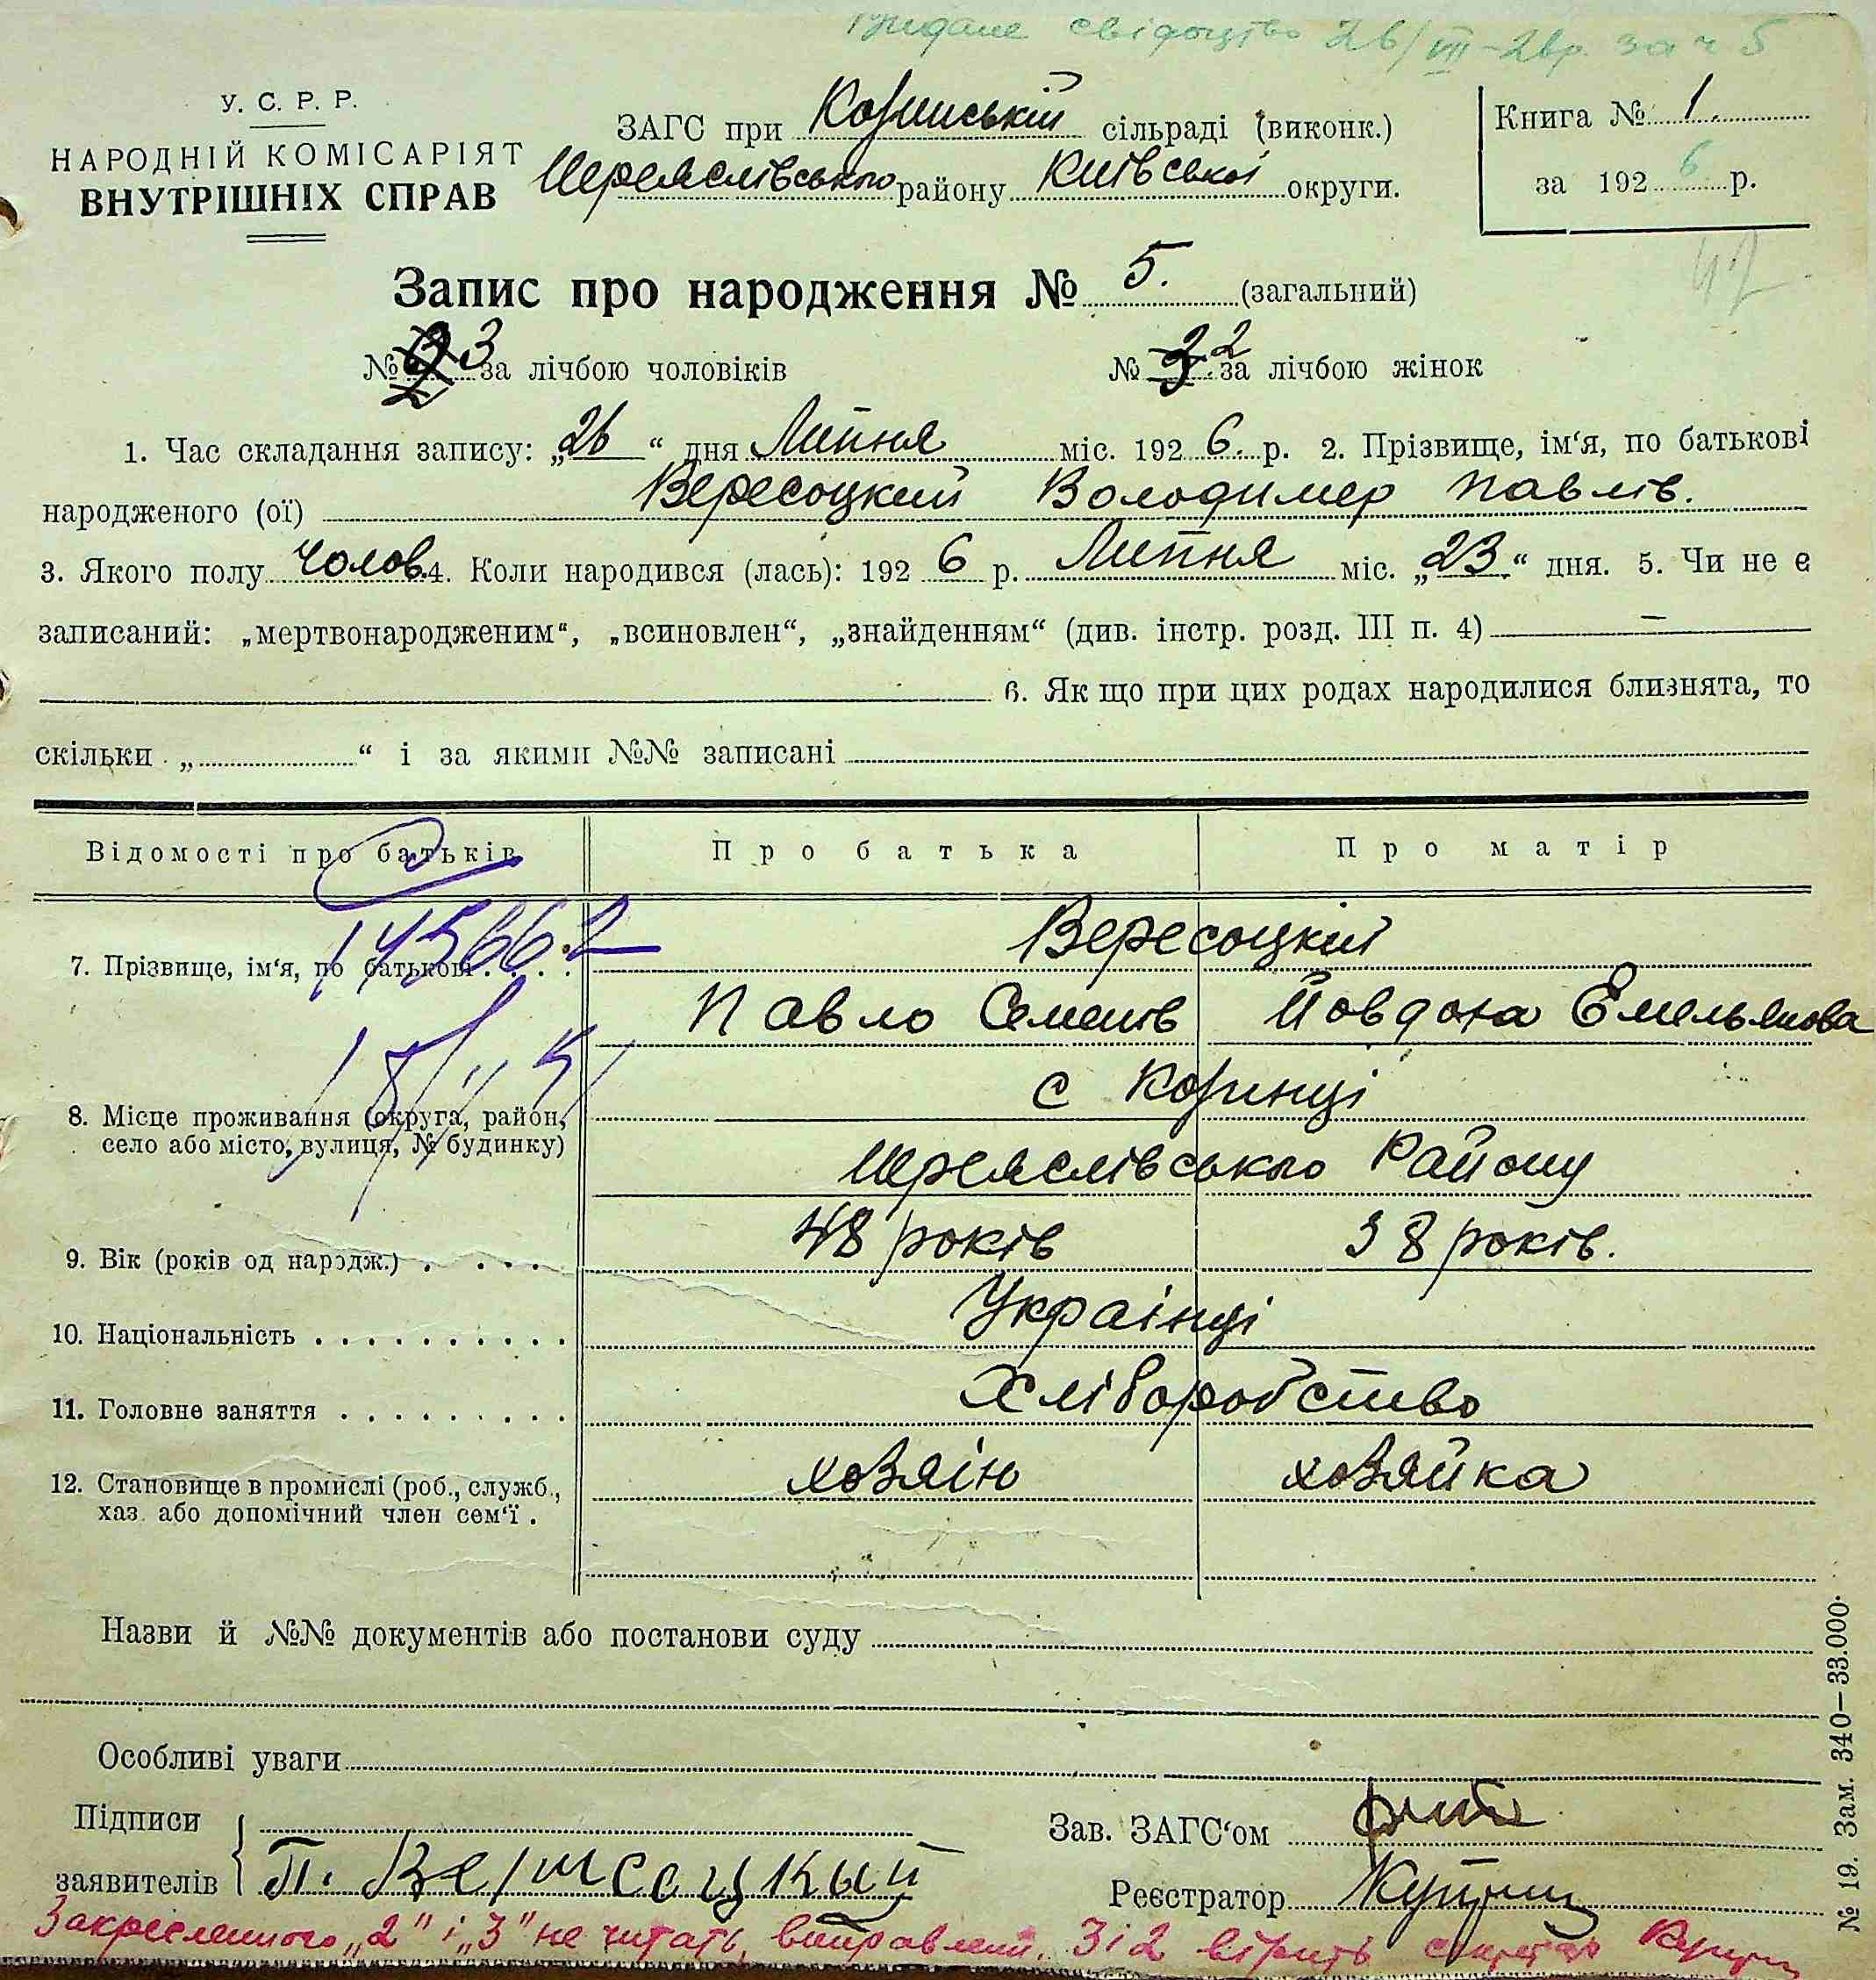 Видане свідоцтво 26/VIII-26р. за ч 5
У. С. Р. Р.
НАРОДНІЙ КОМІСАРІЯТ
ВНУТРІШНІХ СПРАВ
ЗАГС при Коринській сільраді (виконк.)
Переяслівського району Київської округи.
Книга № 1.
за 1926 р.
47
Запис про народження № 5. (загальний)
№ 3 за лічбою чоловіків
№ 2 за лічбою жінок
1. Час складання запису: „26“ дня Липня міс. 1926. р. 2. Прізвище, ім‘я, по батькові
народженого (ої) Вересоцкий Володимер Павлів.
3. Якого полу Чолов. 4. Коли народився (лась): 1926 р. Липня міс. „23“ дня. 5. Чи не є
записаний: „мертвонародженим“, „всиновлен“, „знайденням“ (див. інстр. розд. III п. 4) —
6. Як що при цих родах народилися близнята, то
скільки „ “ і за якими №№ записані
Відомості про батьків
Про батька
Про матір
7. Прізвище, ім‘я, по батькові
Вересоцкій
Павло Семенів
Йовдоха Емельянова
8. Місце проживання (округа, район,
село або місто, вулиця, № будинку)
с Коринці
Переяслівського Району
9. Вік (років од народж.)
48 років
38 років.
10. Національність
Українці
11. Головне заняття
Хліборобство
12. Становище в промислі (роб., служб.,
хаз. або допомічний член сем‘ї.
хозяін
хозяйка
Назви й №№ документів або постанови суду
Особливі уваги
Підписи
заявителів
П. Вересоцкый
Зав. ЗАГС‘ом
Реєстратор
Закресленного „2“ і „3“ не читать, виправлені 3 і 2 вірить секретар
№ 19. Зам. 340—33.000.